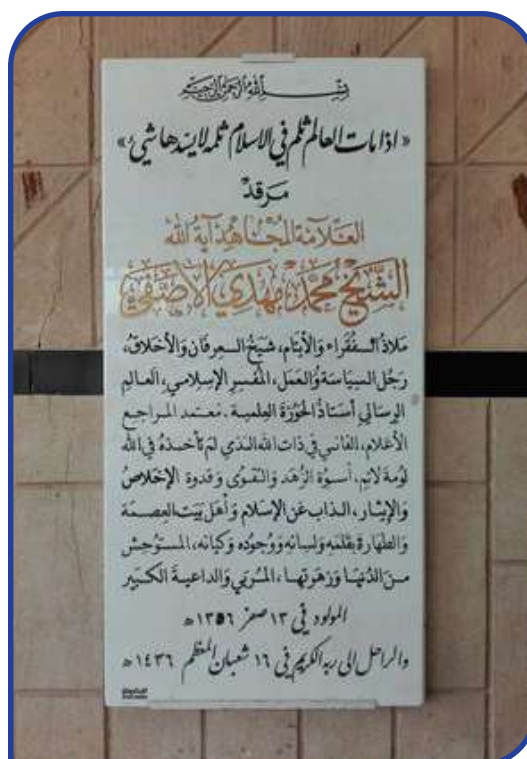 بسم الله الرحمن الرحيم
« اذا مات العالم ثلم في الاسلام ثلمة لايسدها شيء »
مرقد
العلامة المجاهد آية الله
الشيخ محمد مهدي الآصفي
ملاذ الفقراء والأيتام، شيخ العرفان والأخلاق،
رجل السياسة والعمل، المفسر الإسلامي، العالم
الرسالي أستاذ الحوزة العلمية. معتمد المراجع
الأعلام، الفاني في ذات الله الذي لم تأخذه في الله
لومة لائم، أسوة الزهد والتقوى وقدوة الإخلاص
والإيثار، الذاب عن الإسلام وأهل بيت العصمة
والطهارة بقلمه ولسانه ووجوده وكيانه، المستوحش
من الدنيا وزهرتها، المربي والداعية الكبير
المولود في ١٣ صفر ١٣٥٦ هـ
والراحل الى ربه الكريم في ١٦ شعبان المعظم ١٤٣٦ هـ